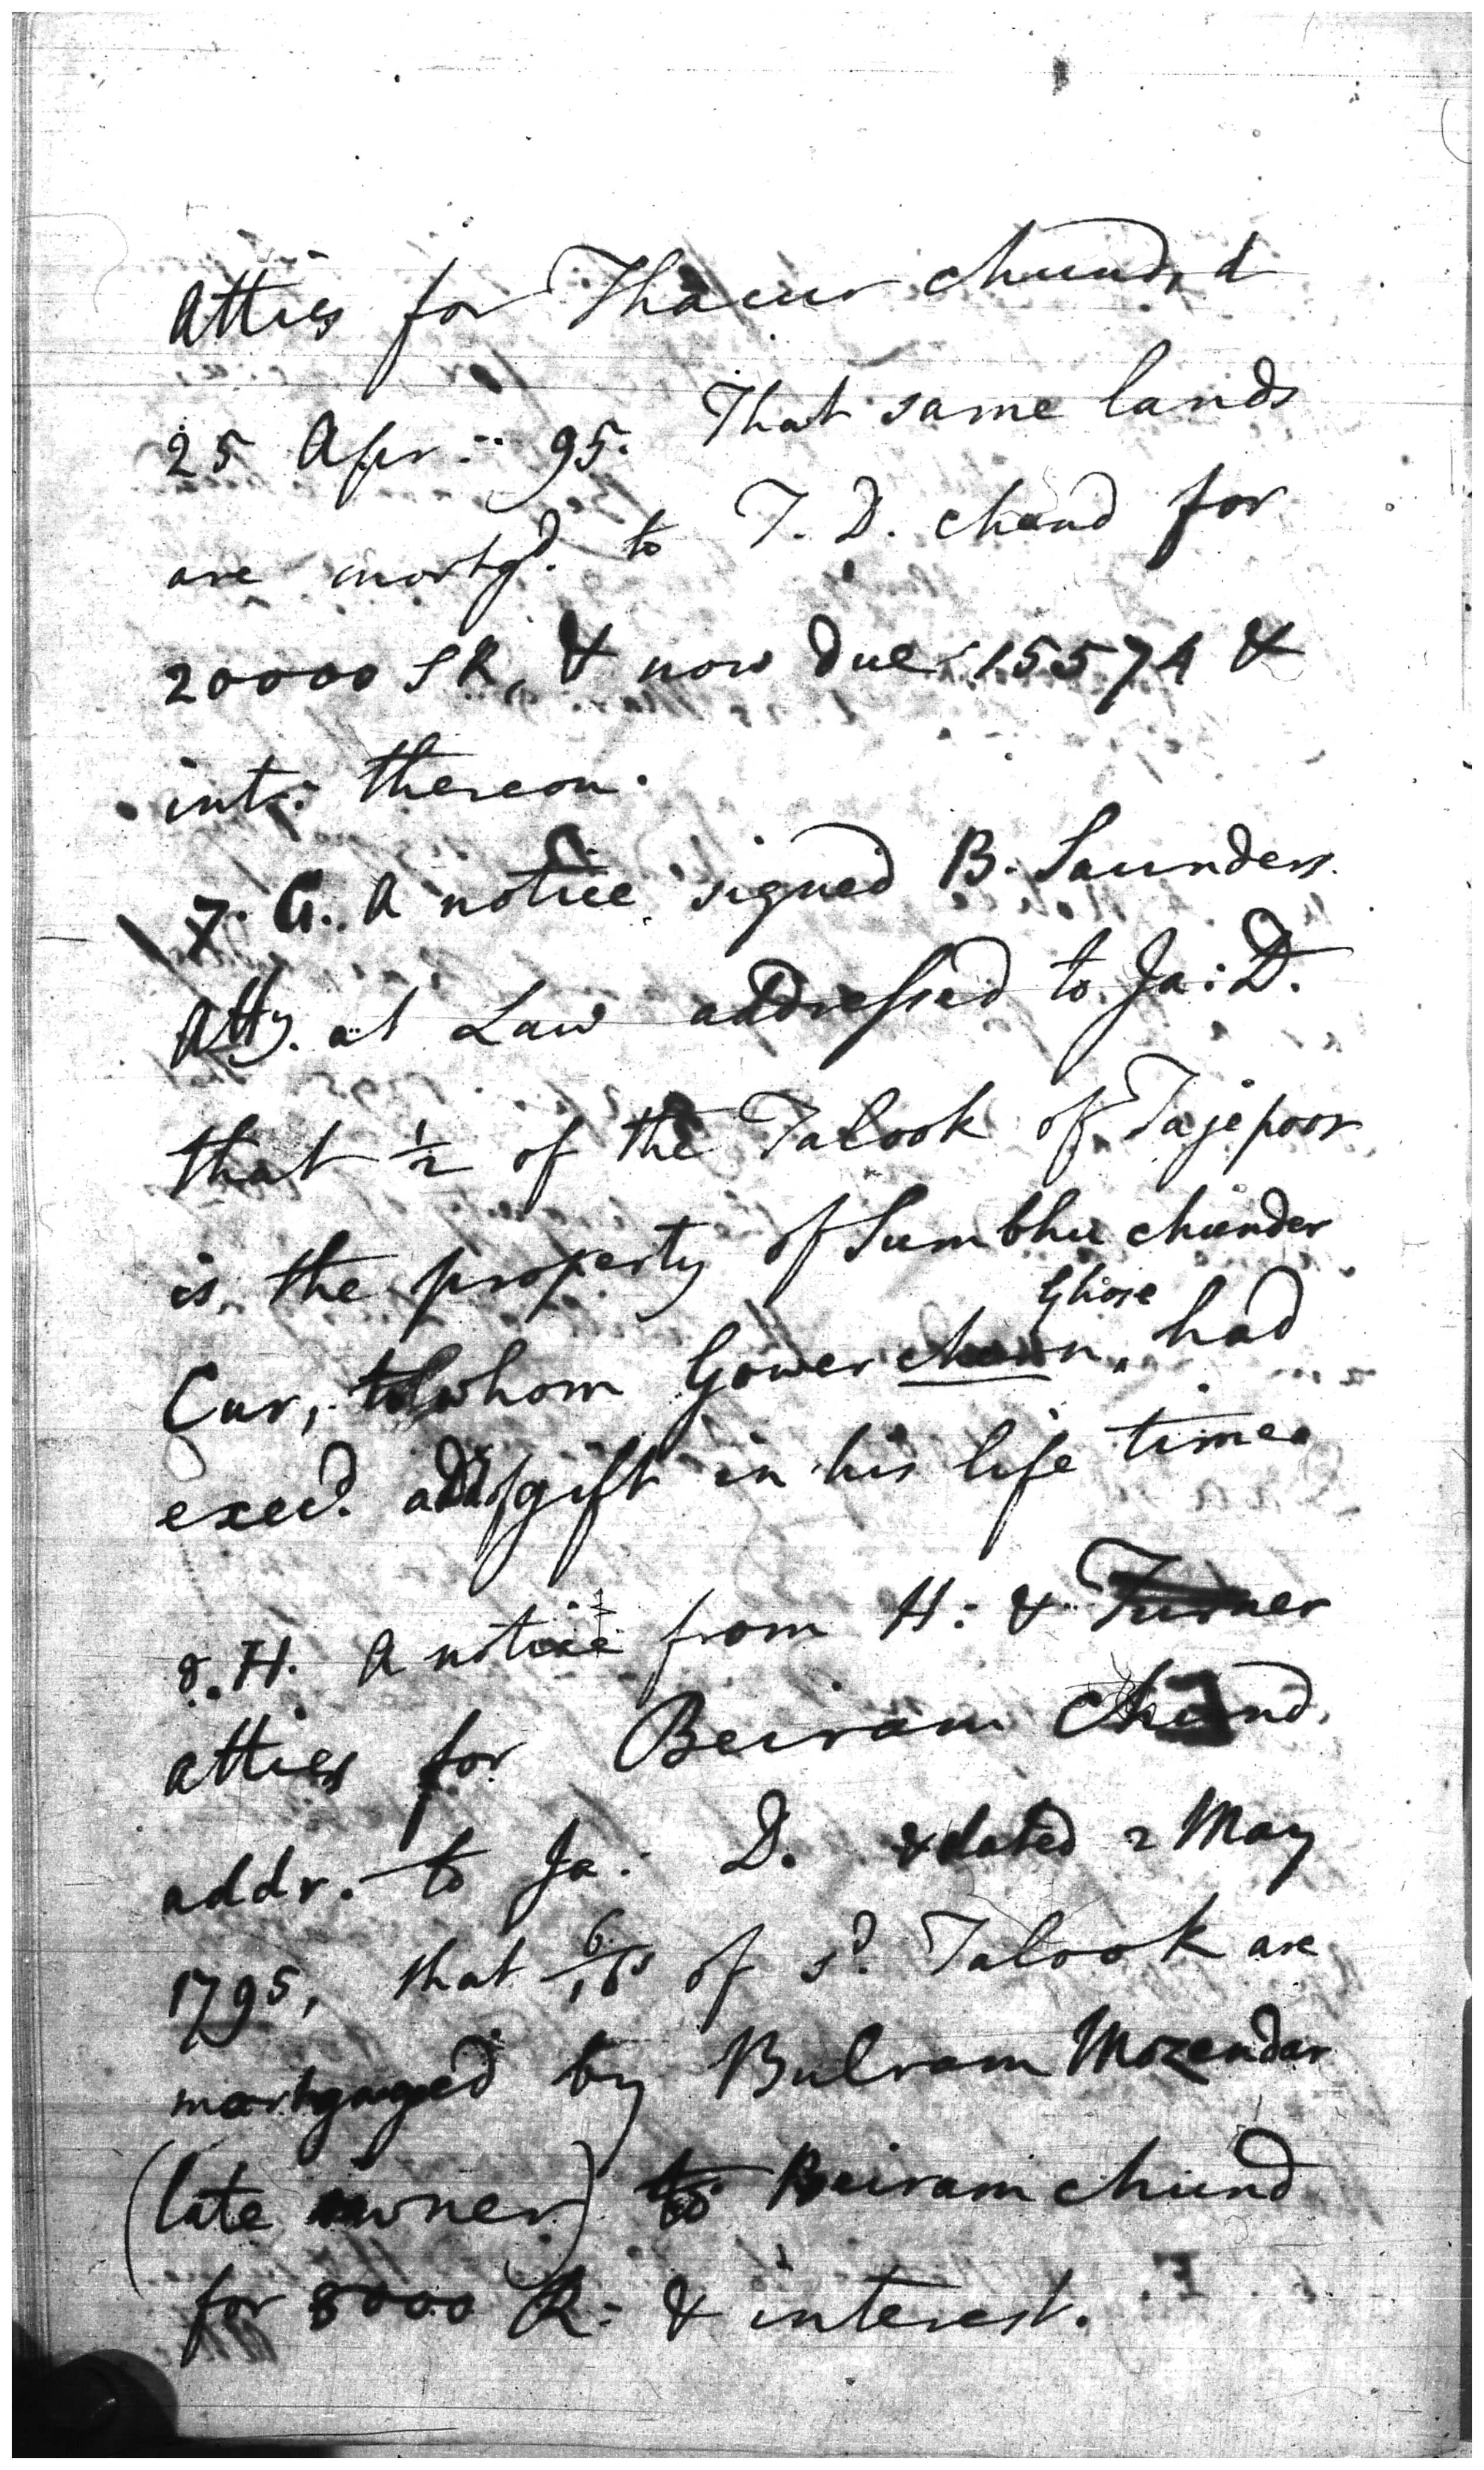 Atties for Thacur chund, d
25 Apr: 95. That same lands
are mortgd. to T. D. chand for
20000 SR, & now due 15574 &
int: thereon.
7. G. A notice signed B. Saunders
Atty. at Law addressed to Ja: D.
that 1/2 of the Talook of Tajepoor
is the property of Sumbhu chunder
Cur, to whom Gower Ghose had
exed. a gift in his life time
8. H. A notice from H: & Turner
atties for Beiram chund,
addr. to Ja: D. & dated 2 May
1795, that 6/16s of sd. Talook are
mortgaged by Bulram Mozendar
(late owner) to Beiram chund
for 8000 R: & interest.